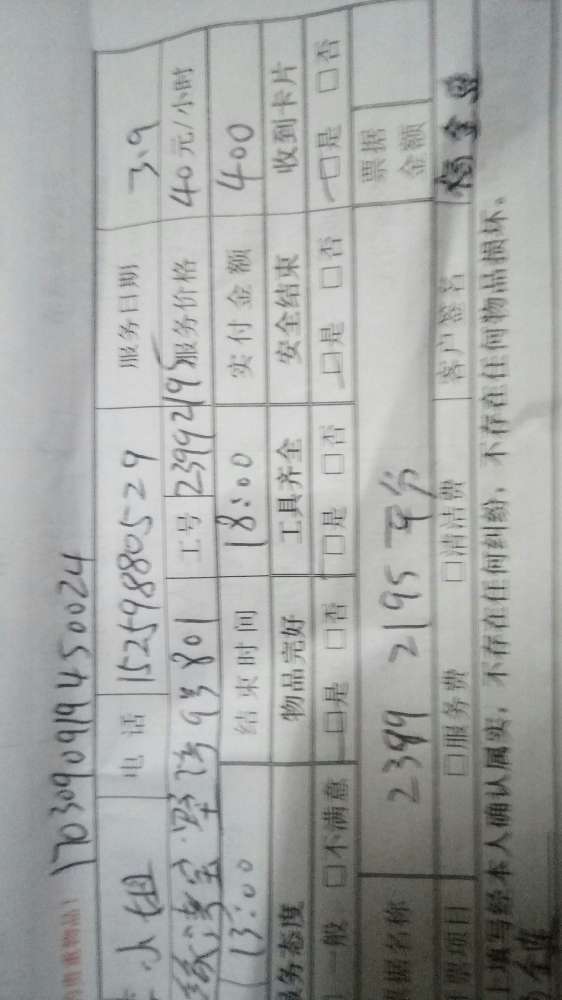 170309091945002４
小姐 电话 15259880529 服务日期 3.9
9号801 工号 2399 2195 服务价格 40元/小时
13:00 结束时间 18:00 实付金额 400
务态度 物品完好 工具齐全 安全结束 收到卡片
一般 □不满意 □是 □否 □是 □否 □是 □否 □是 □否
据名称 2399 2195 平分 票据金额
票项目 □服务费 □清洁费 客户签名
填写经本人确认属实，不存在任何纠纷，不存在任何物品损坏。